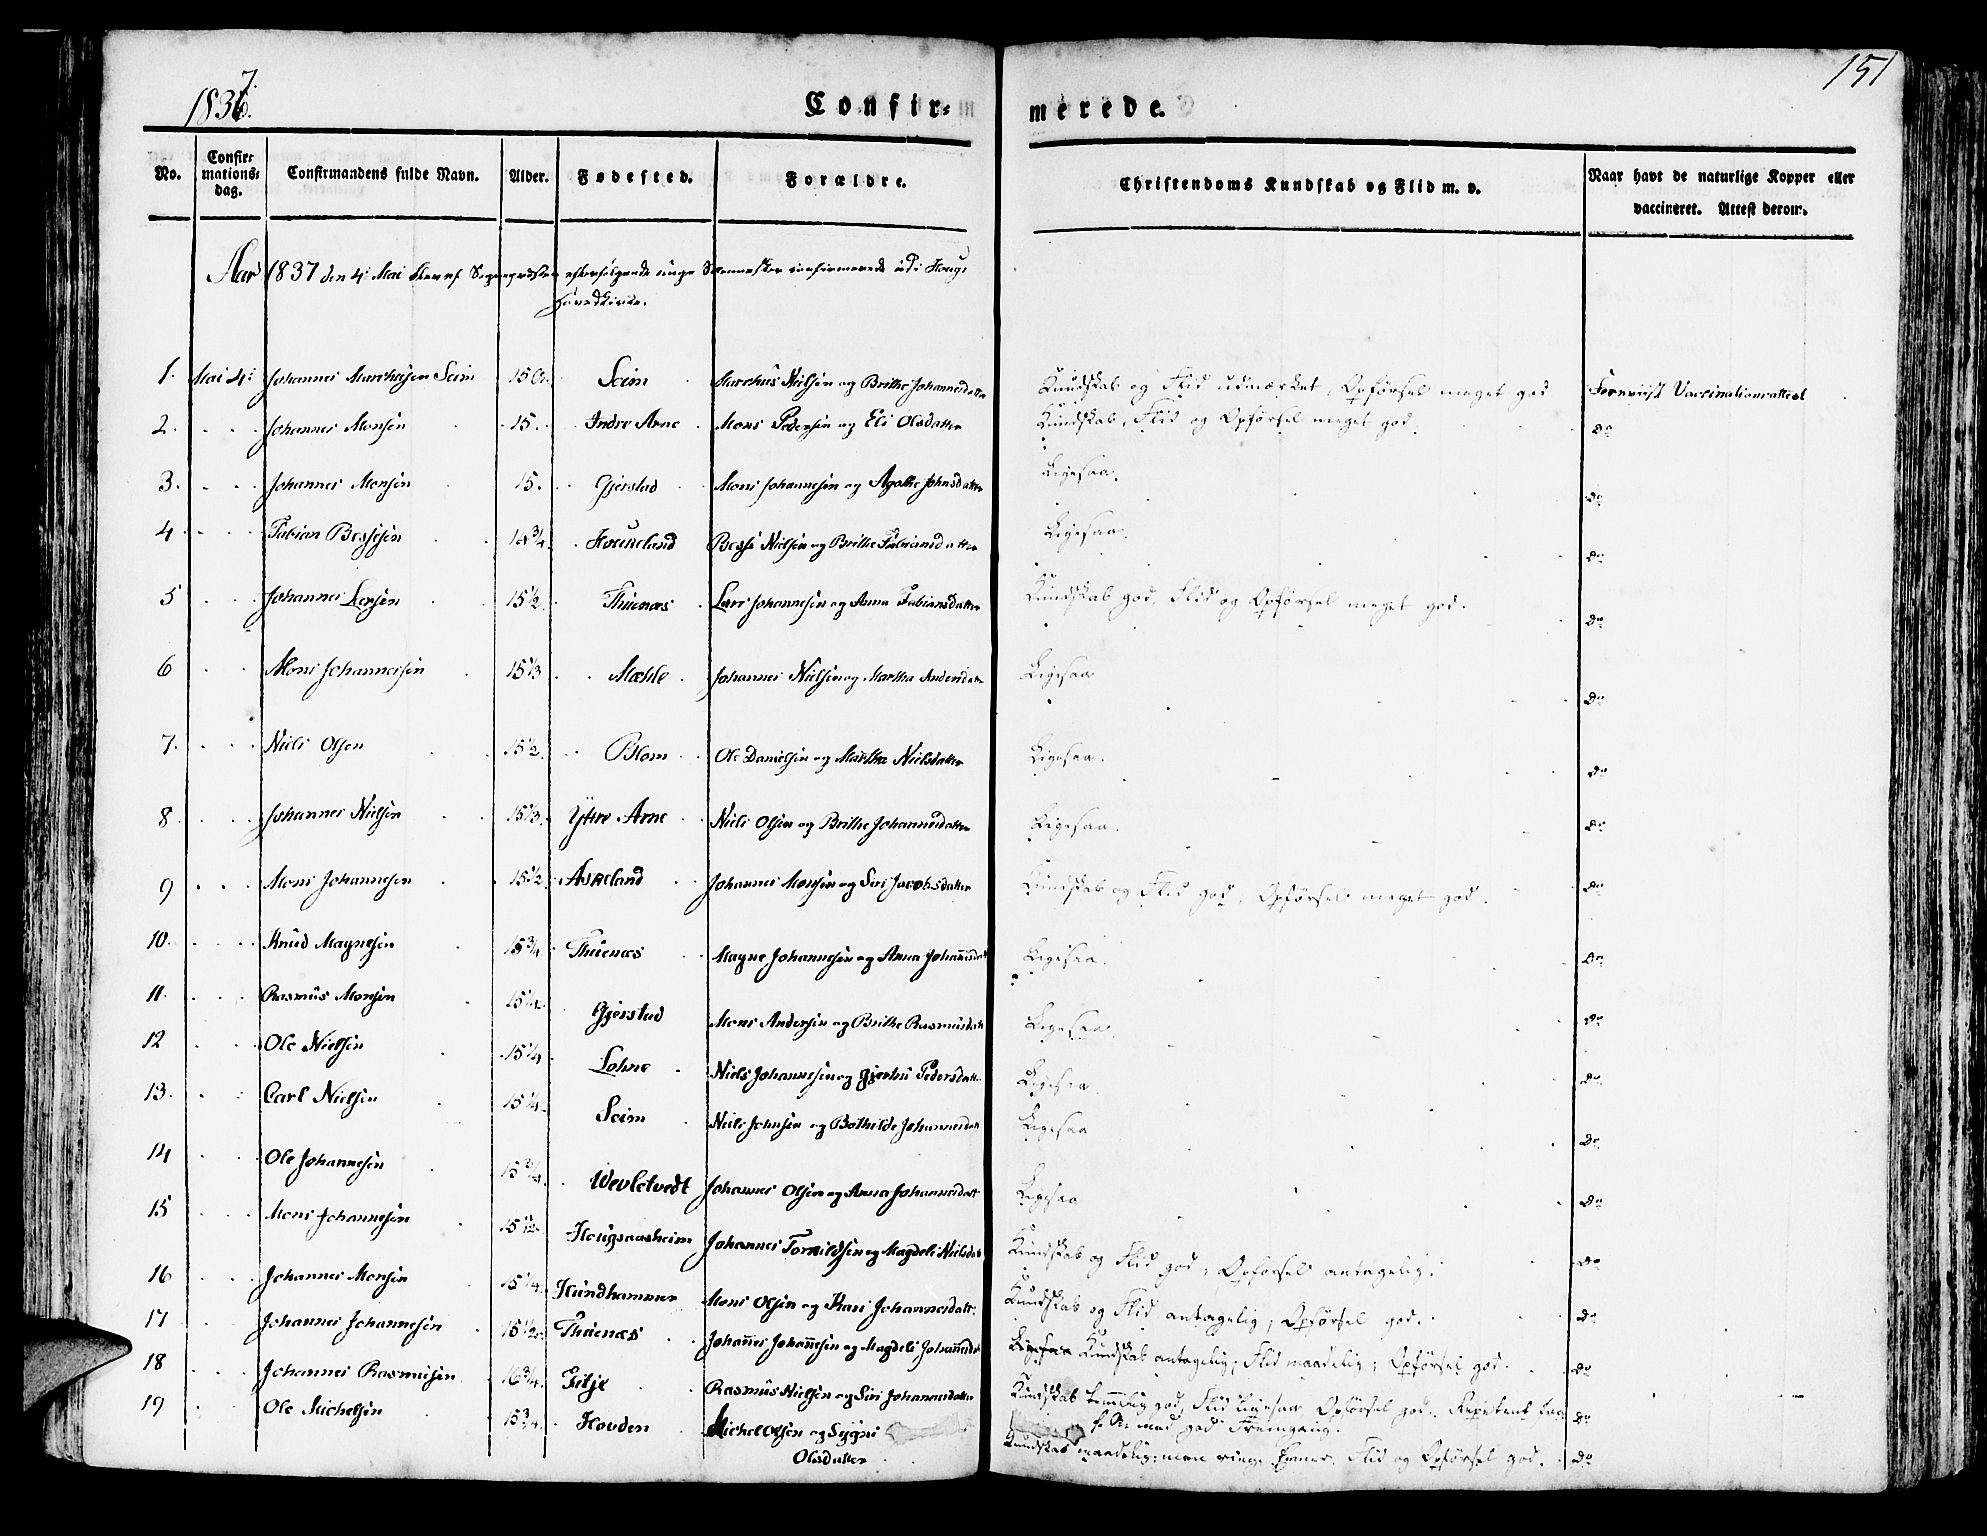 1837.
151
Confir=
merede.
No.
Confir=
mations=
dag.
Confirmandens fulde Navn.
Alder.
Fødested.
Forældre.
Christendoms Kundskab og Flid m. v.
Naar havt de naturlige Kopper eller
vaccineret. Attest derom.
Aar 1837 den 4 Mai efterfølgende unge Mennesker confirmerede udi Hougs
Hovedkirke.
1. Mai 4 Johannes Marchusen Seim 15 Seim Marchus Nielsen og Brithe Johannesdatter Kundskab og Flid udmærket, Opførsel meget god Foreviist Vaccinationsattest
2. Johannes Monsen 15. Indre Arne Mons Pedersen og Eli Olsdatter Kundskab, Flid og Opførsel meget god do
3. Johannes Monsen 15. Gjerstad Mons Johannesen og Agathe Johnsdatter Ligesaa. do
4 Fabian Bessesen Houneland Besse Nielsen og Brithe Fabiansdatter Ligesaa. do
5 Johannes Larsen 15 1/2 Thuenæs Lars Johannesen og Anna Fabiansdatter Kundskab god, Flid og Opførsel meget god. do
6 Mons Johannesen 15 1/3 Mæhle Johannes Nielsen og Martha Andersdatter Ligesaa do
7. Niels Olsen 15 1/2 Blom Ole Danielsen og Martha Nielsdatter Ligesaa. do
8 Johannes Nielsen 15 1/3 Yttre Arne Niels Olsen og Brithe Johannesdatter Ligesaa. do
9 Mons Johannesen 15 1/2 Asheland Johannes Monsen og Siri Jacobsdatter Kundskab og Flid god, Opførsel meget god. do
10. Knud Magnesen 15 3/4 Thuenæs Magne Johannesen og Anna Johannesdatt Ligesaa. do
11. Rasmus Monsen 15 1/4 Gjerstad Mons Andersen og Brithe Rasmusdatt Ligesaa. do
12 Ole Nielsen 15 1/4 Lohne Niels Johannesen og Gjertru Pedersdatt. Ligesaa. do
13. Carl Nielsen 15 1/4 Seim Niels Johnsen og Bothilde Johannesdatt Ligesaa do
14 Ole Johannesen 15 3/4 Wevletvedt Johannes Olsen og Anna Johannesdatt Ligesaa do
15 Mons Johannesen Hougsaasheim Johannes Torkildsen og Magdeli Nielsdatt Kundskab og Flid god, Opførsel antagelig. do
16 Johannes Monsen 15 1/4 Hundhammer Mons Olsen og Kari Johannesdatt. Kundskab og Flid antagelig, Opførsel god. do
17 Johannes Johannesen 15 1/2 Thuenæs Johannes Johannesen og Magdeli Johannesdatt Ligesaa Kundskab antagelig; Flid maadelig; Opførsel god. do
18 Johannes Rasmusen 16 3/4 Fitje Rasmus Nielsen og Siri Johannesdatter Kundskab temmelig god, Flid ligesaa, Opførsel god. Repetent do
med god Fremgang.
19 Ole Michelsen 15 3/4 Hovden Michel Olsen og Sygni
Olsdatter Kundskab maadelig; Flid og Opførsel god. do